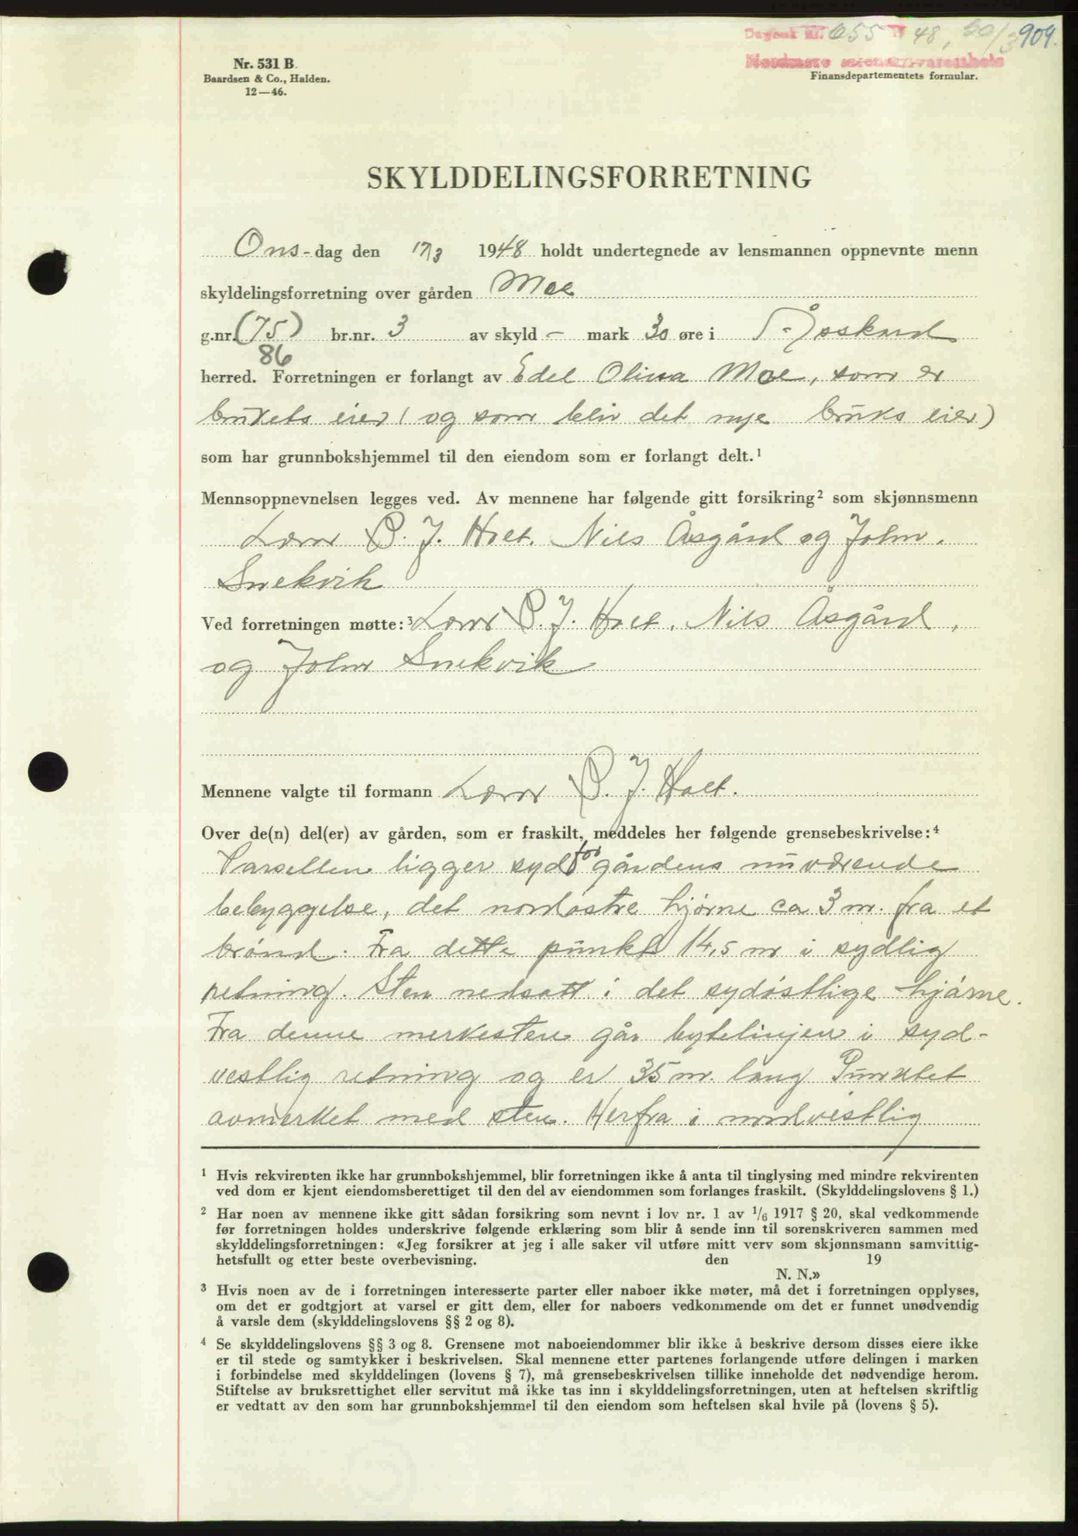 Dagbok nr. 655 1948, 20/3 909.
Nr. 531 B.
Baardsen & Co., Halden.
12—46.
Nordmøre sorenskriverembete
Finansdepartementets formular.
SKYLDDELINGSFORRETNING
Ons-dag den 17/3 1948 holdt undertegnede av lensmannen oppnevnte menn
skyldelingsforretning over gården Moe
g.nr. (75) br.nr. 3 av skyld – mark 30 øre i Åsskard
86
herred. Forretningen er forlangt av Edel Olina Moe, som er
brukets eier (og som blir det nye bruks eier)
som har grunnbokshjemmel til den eiendom som er forlangt delt.¹
Mennsoppnevnelsen legges ved. Av mennene har følgende gitt forsikring² som skjønnsmenn
Lærer P. J. Holt, Nils Åsgård og John
Snekvik
Ved forretningen møtte:³ Lærer P. J. Holt, Nils Åsgård,
og John Snekvik
Mennene valgte til formann Lærer P. J. Holt.
Over de(n) del(er) av gården, som er fraskilt, meddeles her følgende grensebeskrivelse:⁴
Parsellen ligger syd for gårdens nuværende
bebyggelse, det nordøstre hjørne ca 3 m. fra et
brønd. Fra dette punkt 14,5 m i sydlig
retning. Sten nedsatt i det sydøstlige hjørne.
Fra denne merkesten går bytelinjen i syd-
vestlig retning og er 35 m. lang Punktet
avmerket med sten. Herfra i nordvestlig
¹ Hvis rekvirenten ikke har grunnbokshjemmel, blir forretningen ikke å anta til tinglysing med mindre rekvirenten
ved dom er kjent eiendomsberettiget til den del av eiendommen som forlanges fraskilt. (Skylddelingslovens § 1.)
² Har noen av mennene ikke gitt sådan forsikring som nevnt i lov nr. 1 av 1/6 1917 § 20, skal vedkommende
før forretningen holdes underskrive følgende erklæring som blir å sende inn til sorenskriveren sammen med
skylddelingsforretningen: «Jeg forsikrer at jeg i alle saker vil utføre mitt verv som skjønnsmann samvittig-
hetsfullt og etter beste overbevisning. den 19
N. N.»
³ Hvis noen av de i forretningen interesserte parter eller naboer ikke møter, må det i forretningen opplyses,
om det er godtgjort at varsel er gitt dem, eller for naboers vedkommende om det er funnet unødvendig
å varsle dem (skylddelingslovens §§ 2 og 8).
⁴ Se skylddelingslovens §§ 3 og 8. Grensene mot naboeiendommer blir ikke å beskrive dersom disses eiere ikke
er til stede og samtykker i beskrivelsen. Skal mennene etter partenes forlangende utføre delingen i marken
i forbindelse med skylddelingen (lovens § 7), må grensebeskrivelsen tillike inneholde det nødvendige herom.
Stiftelse av bruksrettighet eller servitut må ikke tas inn i skylddelingsforretningen, uten at heftelsen skriftlig
er vedtatt av den som har grunnbokshjemmel til den eiendom som heftelsen skal hvile på (lovens § 5).